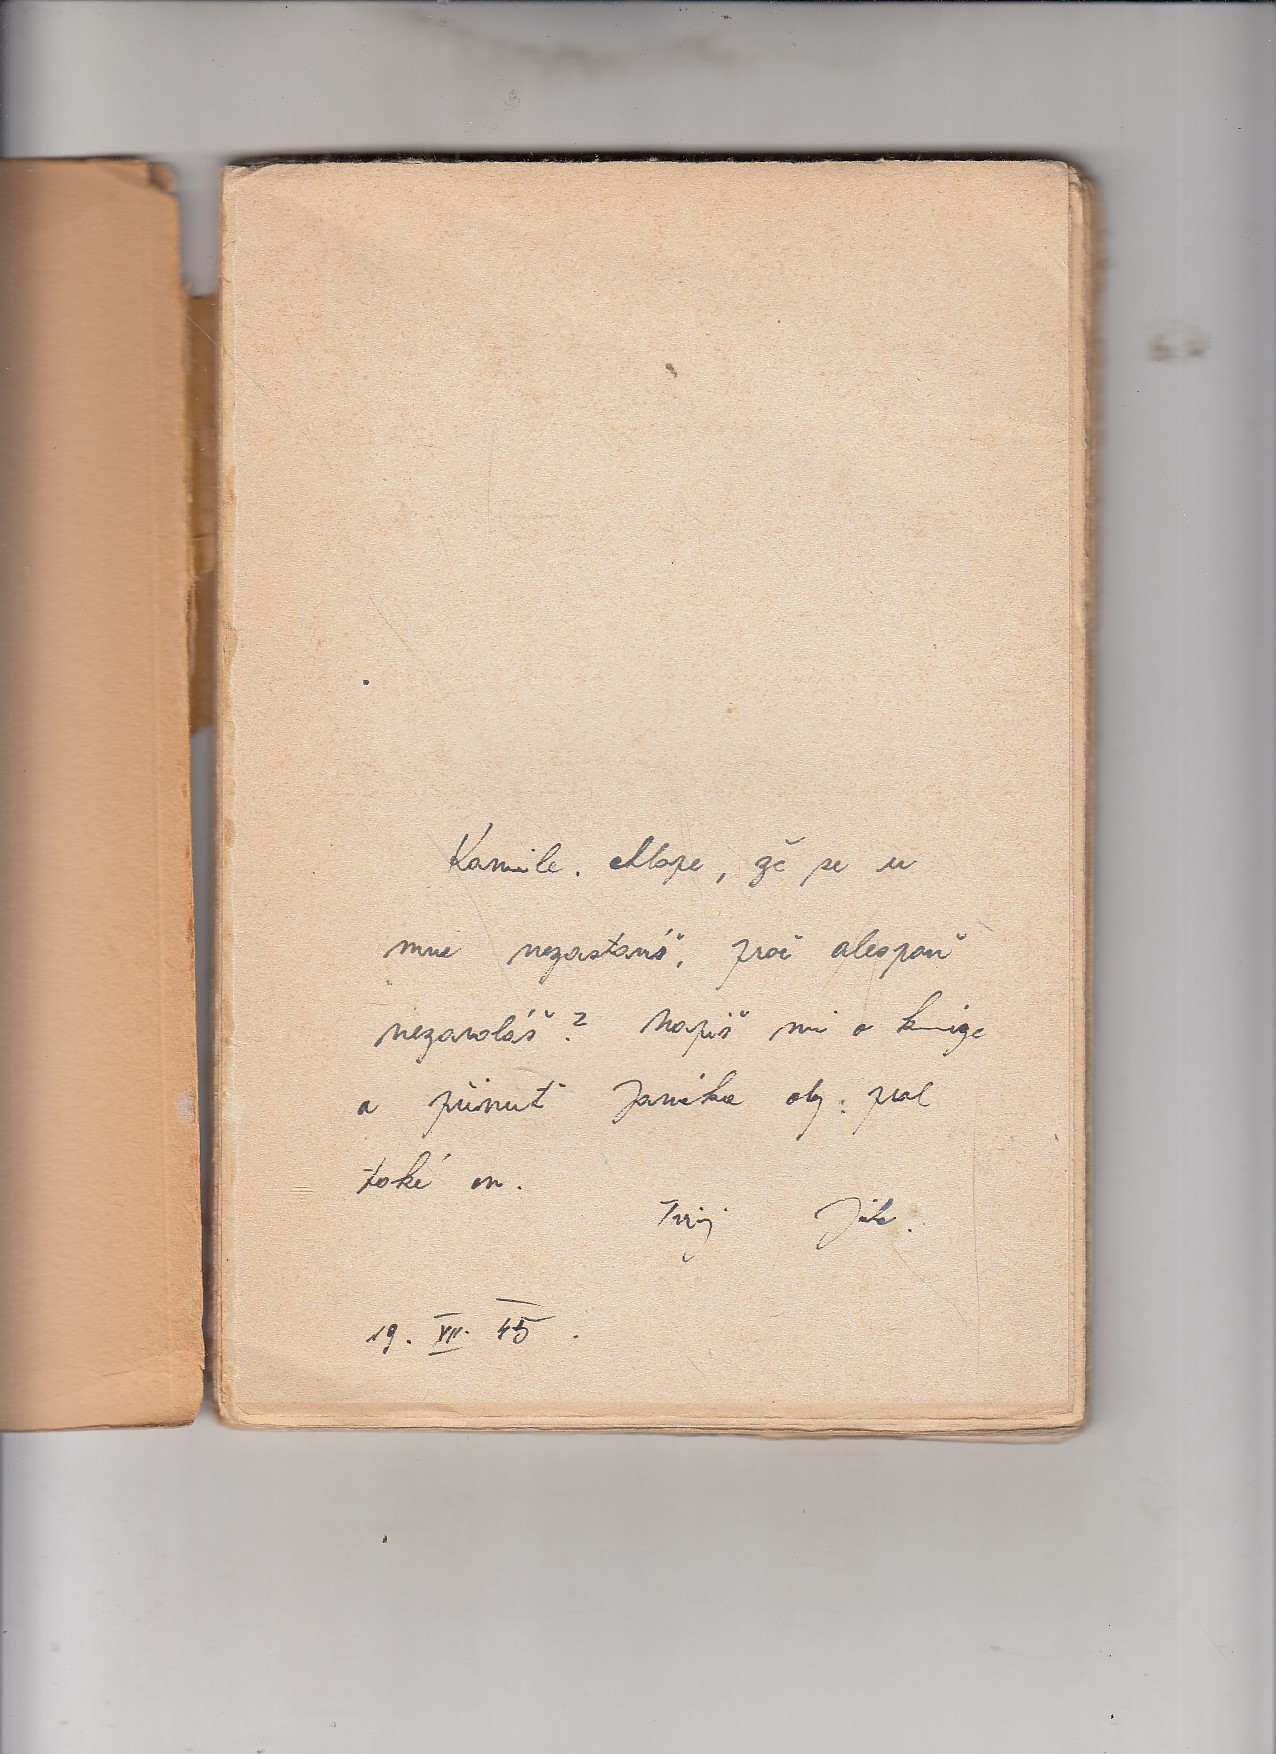 Kamile. Mope, že se u
mne nezastavíš, proč alespoň
nezavoláš? Napiš mi o knize
a přinuť Janíka aby: psal
také on.
Tvůj
19. VII. 45.